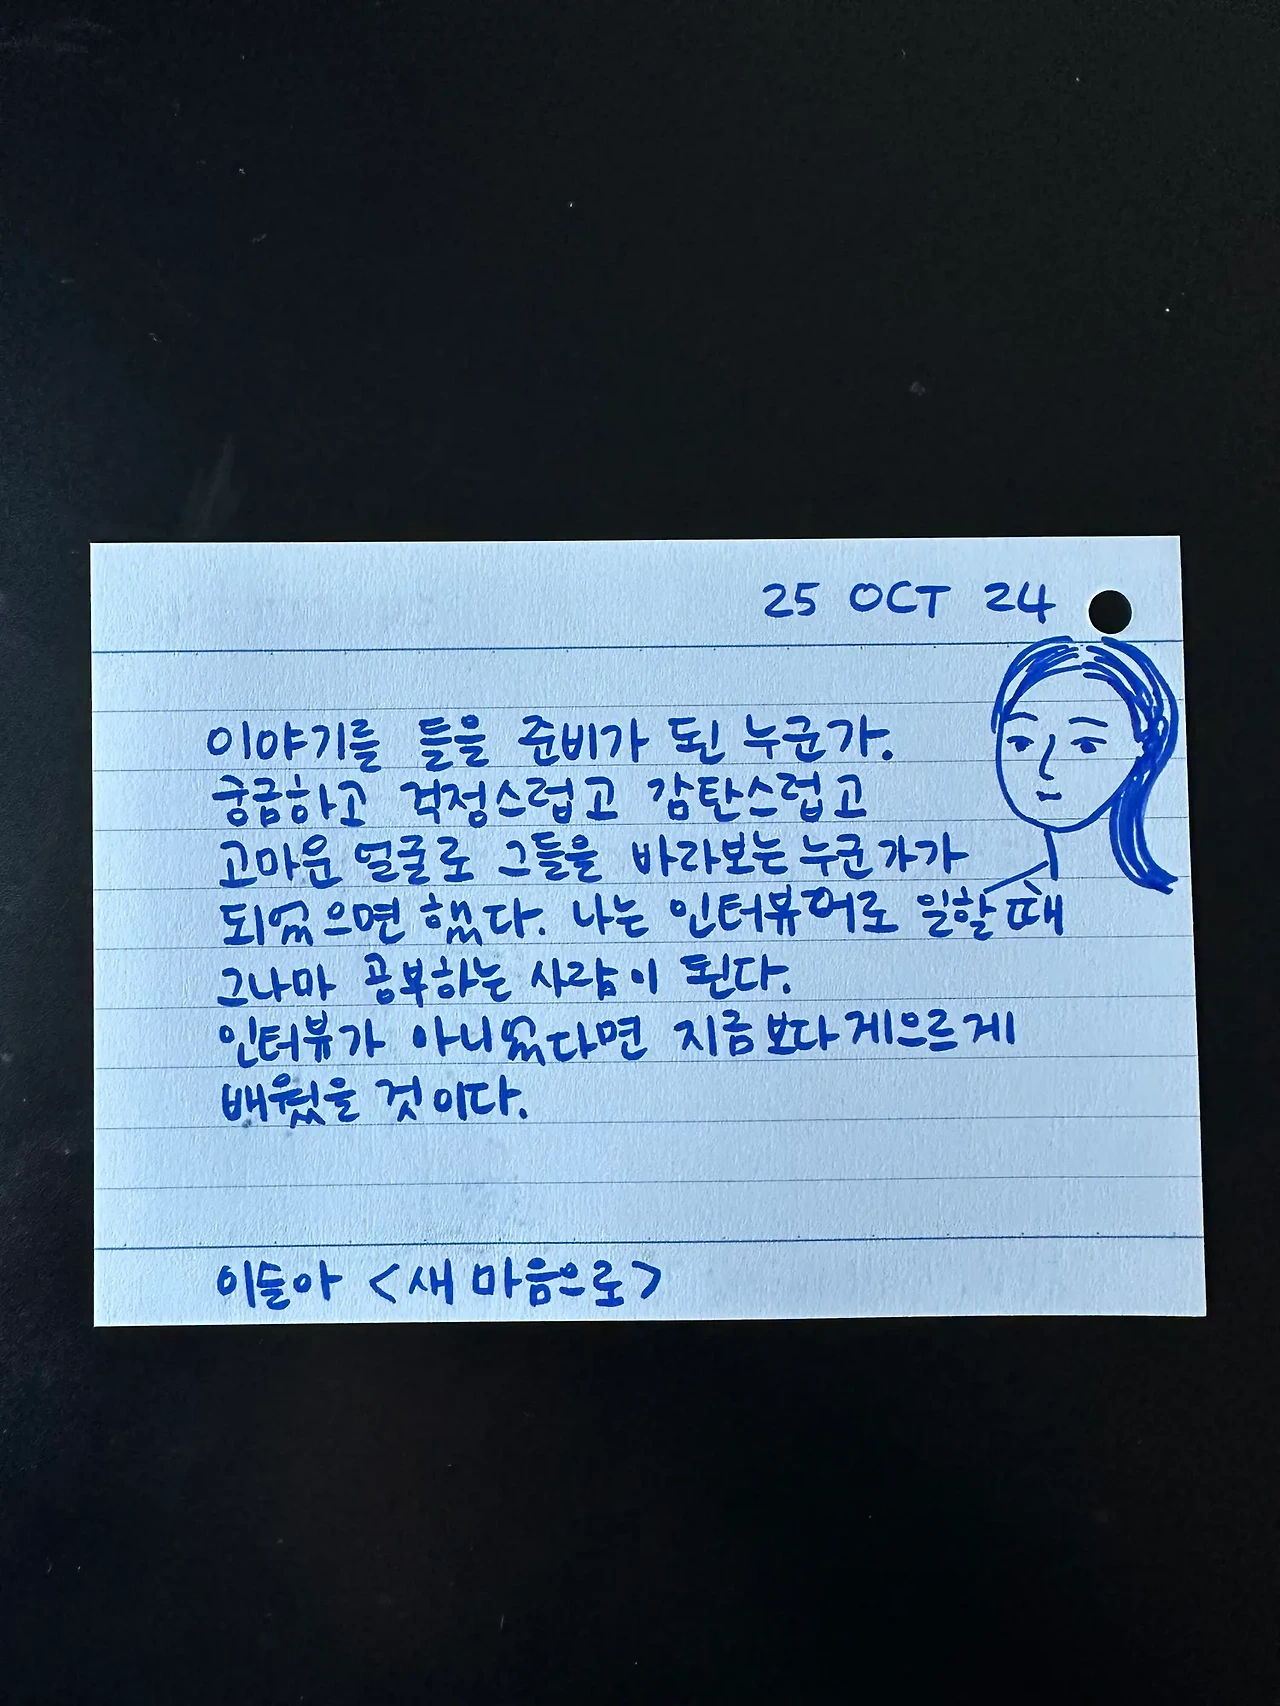 25 OCT 24
이야기를 들을 준비가 된 누군가.
궁금하고 걱정스럽고 감탄스럽고
고마운 얼굴로 그들을 바라보는 누군가가
되었으면 했다. 나는 인터뷰어로 일할 때
그나마 공부하는 사람이 된다.
인터뷰가 아니었다면 지금보다 게으르게
배웠을 것이다.
이슬아 <새 마음으로>